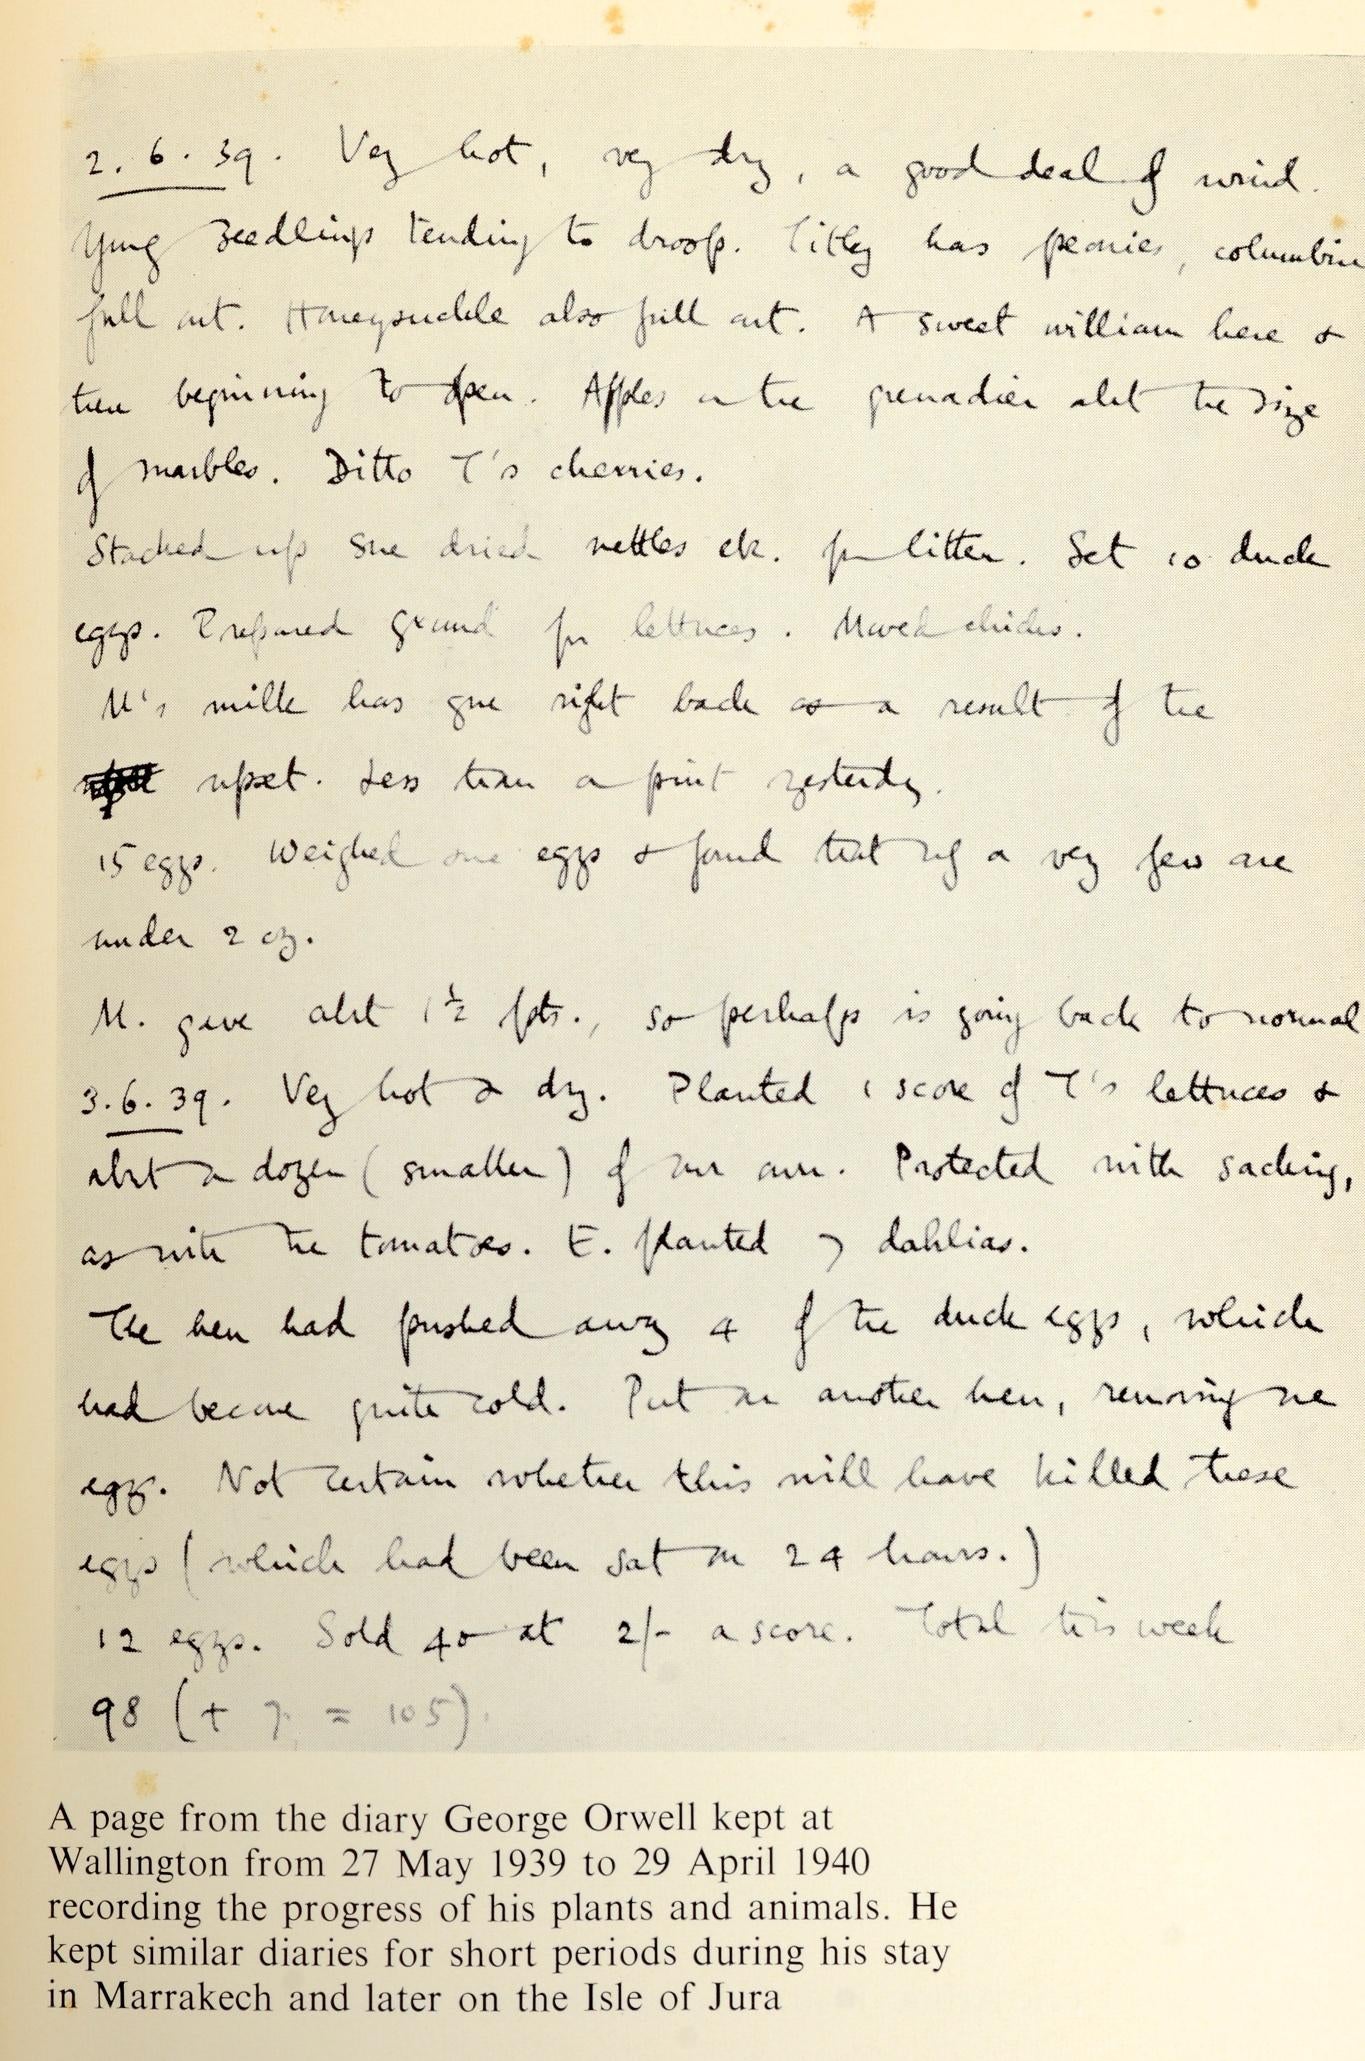 2.6.39. Very hot, very dry, a good deal of wind.
Young seedlings tending to droop. Titley has peonies, columbine
full out. Honeysuckle also full out. A sweet william here &
there beginning to open. Apples on the grenadier about the size
of marbles. Ditto T's cherries.
Stacked up some dried nettles etc. for litter. Set 10 duck
eggs. Prepared ground for lettuces. Moved chicks.
M's milk has gone right back as a result of the
upset. Less than a pint yesterday.
15 eggs. Weighed some eggs & found that only a very few are
under 2 oz.
M. gave about 1½ pts., so perhaps is going back to normal
3.6.39. Very hot & dry. Planted 1 score of T's lettuces &
about a dozen (smaller) of our own. Protected with sacking,
as with the tomatoes. E. planted 7 dahlias.
The hen had pushed away 4 of the duck eggs, which
had become quite cold. Put on another hen, removing one
egg. Not certain whether this will have killed these
eggs (which had been sat on 24 hours.)
12 eggs. Sold 40 at 2/- a score. Total this week
98 (+ 7 = 105).
A page from the diary George Orwell kept at
Wallington from 27 May 1939 to 29 April 1940
recording the progress of his plants and animals. He
kept similar diaries for short periods during his stay
in Marrakech and later on the Isle of Jura